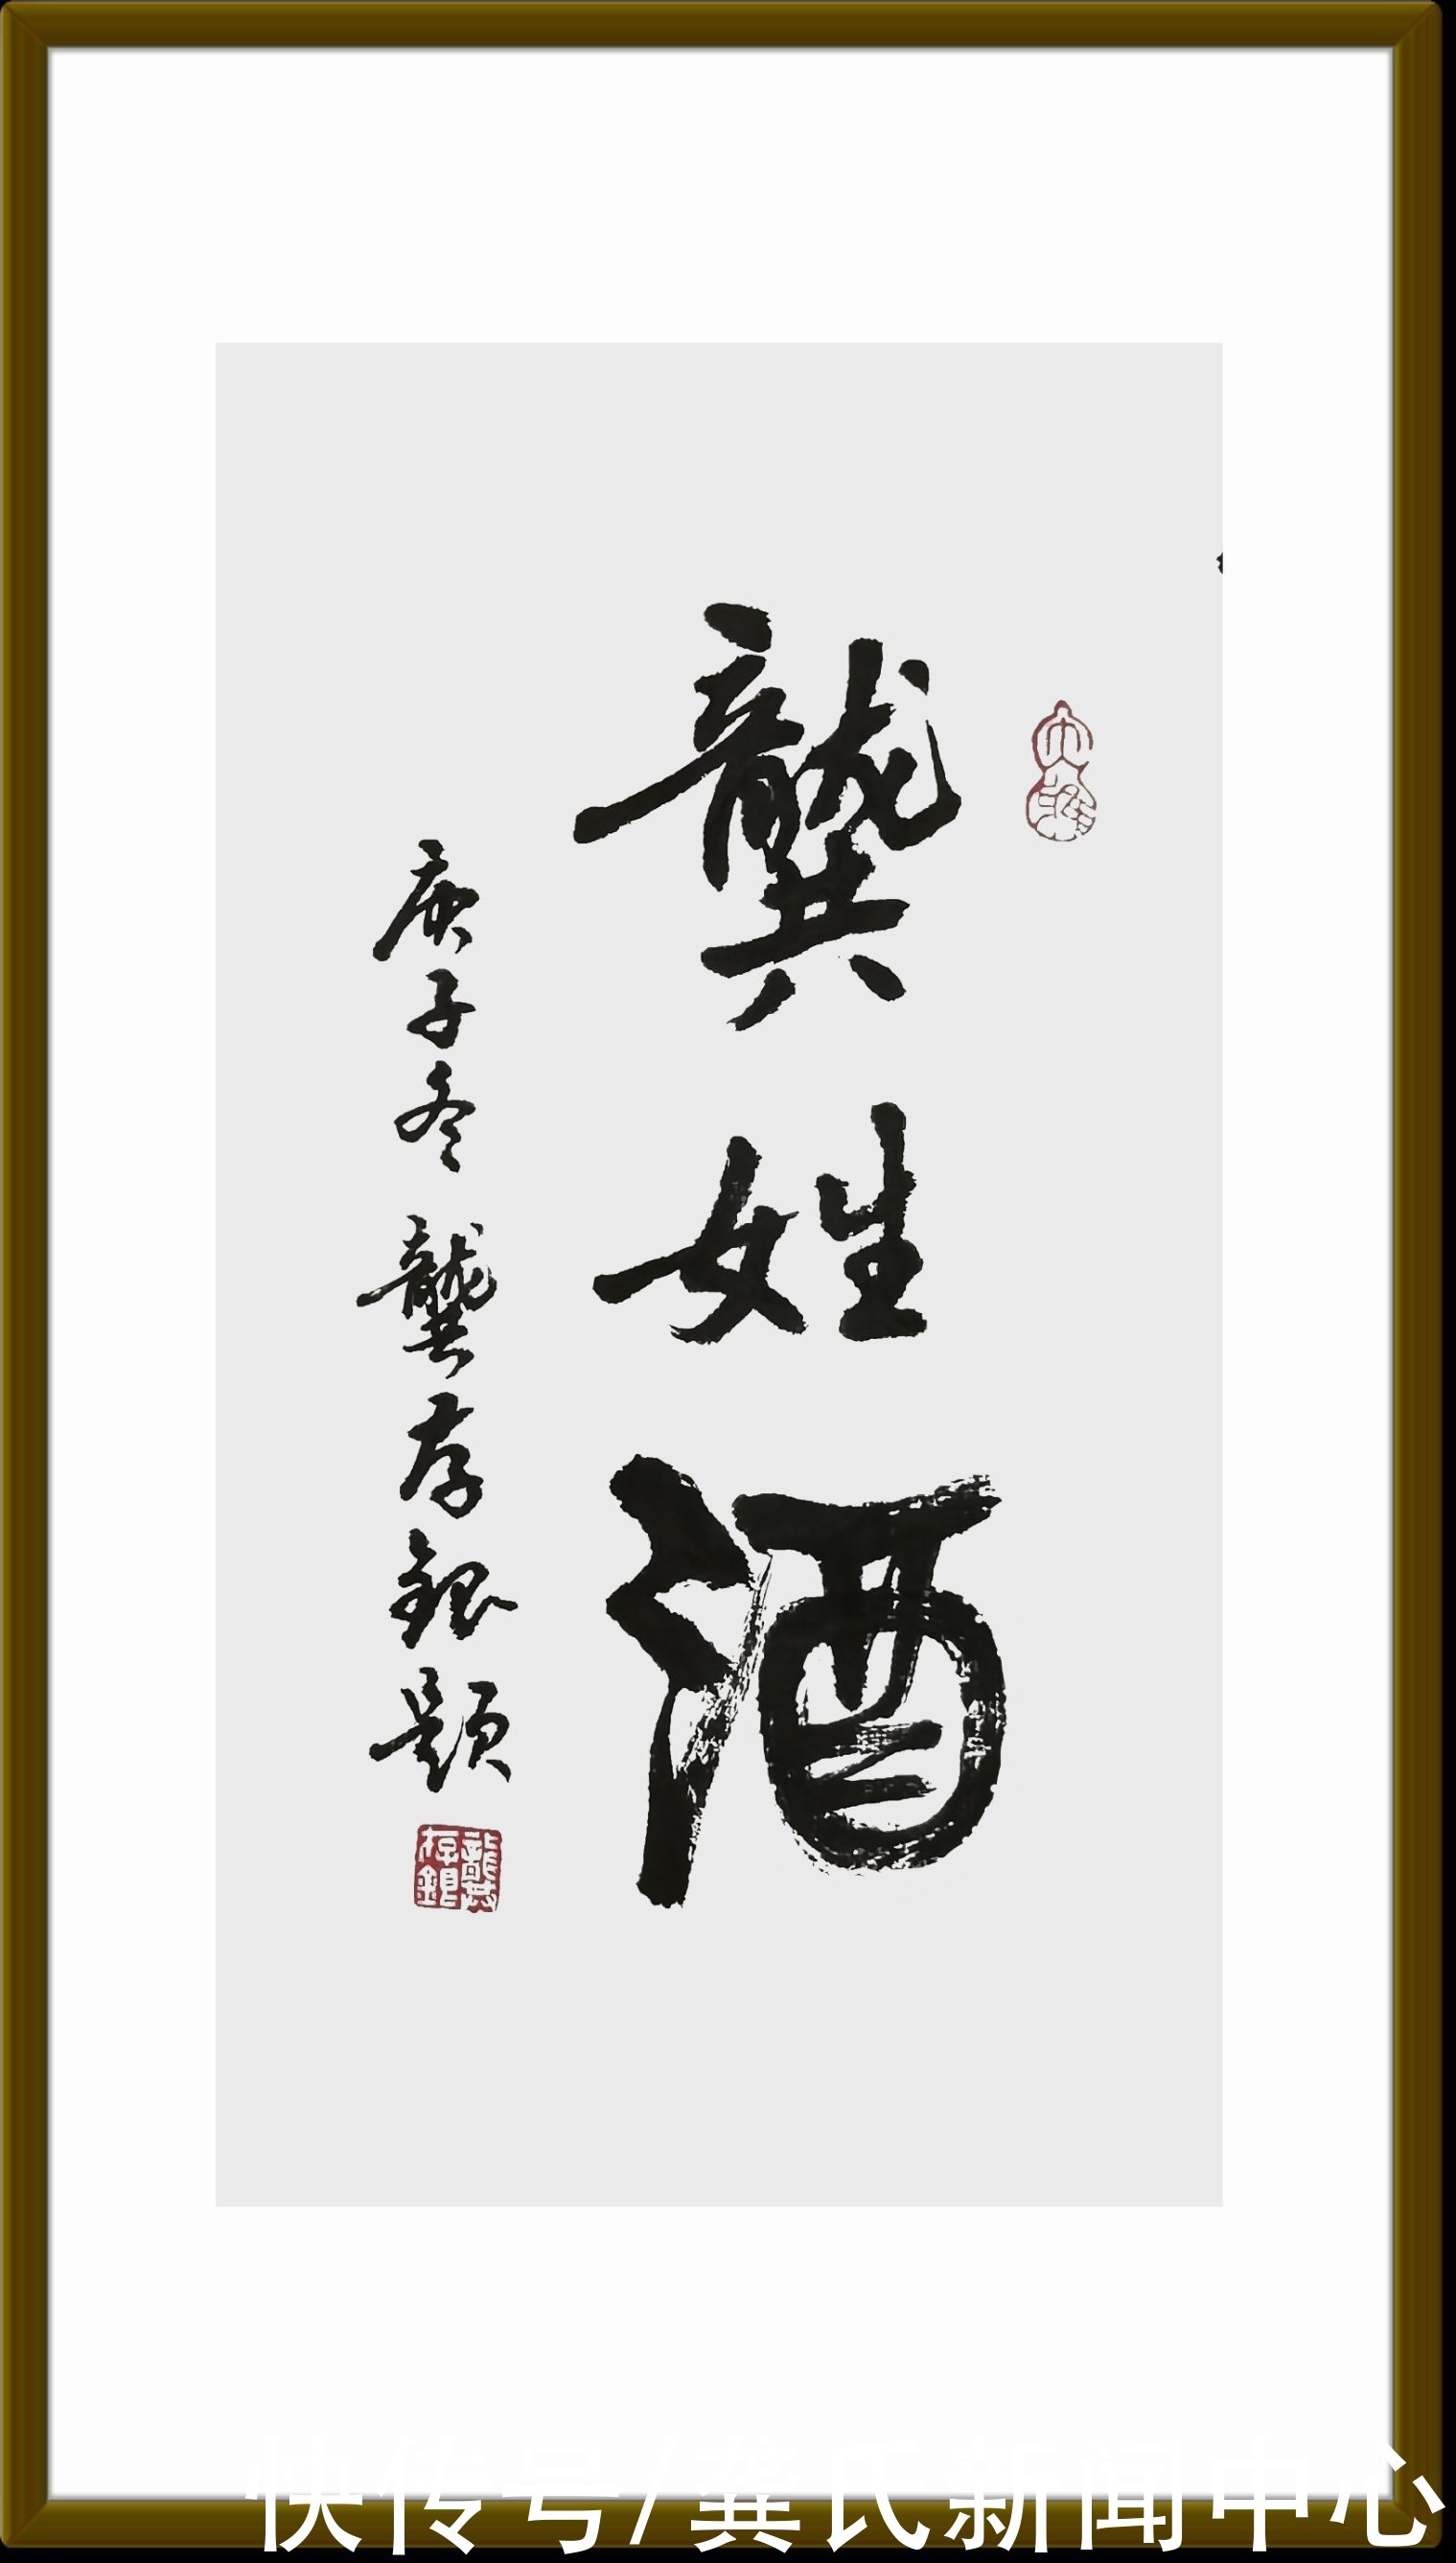 龔姓酒
庚子冬 龔存銀題
龔存銀
快传号/龚氏新闻中心